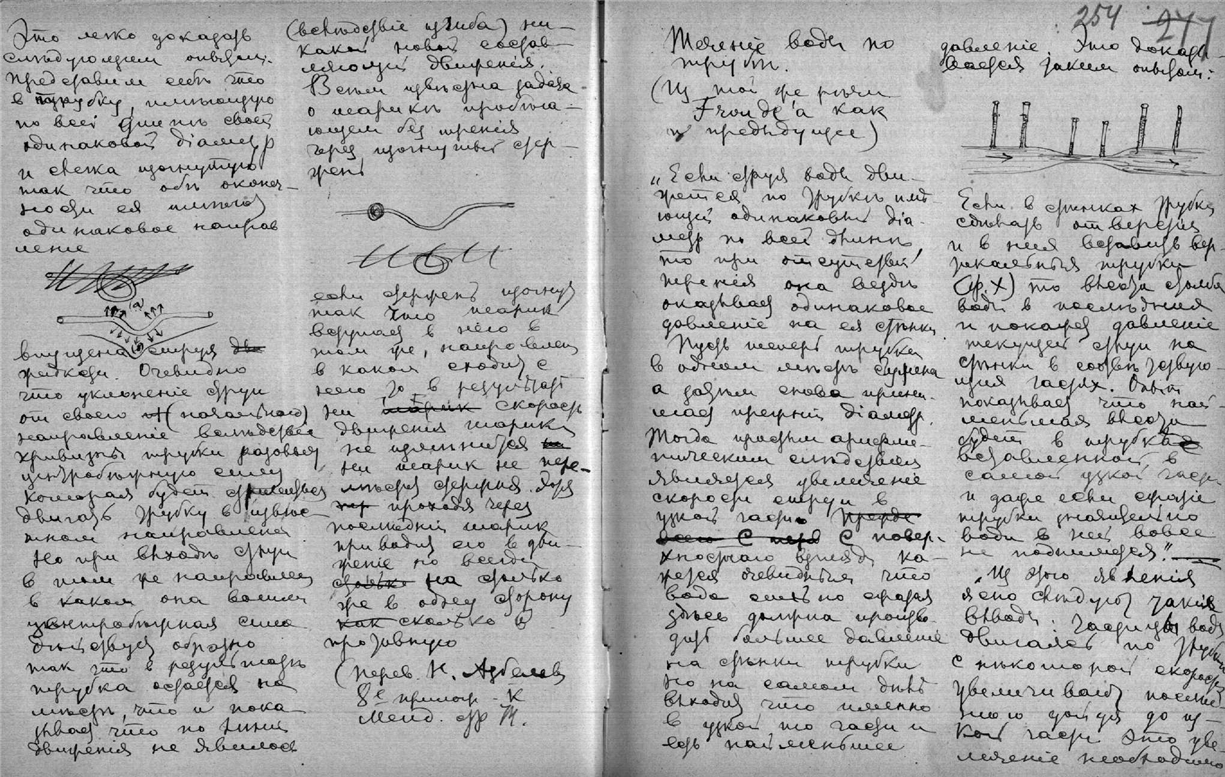 Это легко доказать
следующим опытом.
Представим себе что
в трубку, имеющую
по всей длинѣ своей
одинаковой діаметр
и слегка изогнутую
так что обѣ оконеч-
ности ея имеют
одинаковое направ
леніе
впущена струя
жидкости. Очевидно
что уклоненіе струи
от своего (начального)
направленія вслѣдствіе
кривизны трубки разовьет
центробѣжную силу
которая будет стремиться
двигать трубку в извѣс-
тном направленіи.
Но при выходѣ струи
в том же направленіи
в каком она вошла
центробѣжная сила
дѣйствует обратно
так что в результатѣ
трубка остается на
мѣстѣ, что и пока
зывает, что по линіи
движенія не явилось
(вслѣдствіе изгиба) ни-
какой новой состав
ляющей движенія.
Всѣм извѣстна задача
о шарикѣ пробѣга-
ющем без тренія
через изогнутый стер-
жень
если стержень изогнут
так что шарик
вступает в него в
том же направленіи
в каком сходит с
него то в результатѣ
ни скорость
движенія шарика
не измѣнится
ни шарик не пере-
мѣстит стержня. Хотя
проходя через
послѣдній шарик
приводит его в дви-
женіе но всегда
на столько
же в одну сторону
сколько в
противную
(перев. Н.
8º
254
277
Теченіе воды по
трубѣ.
(Из той же рѣчи
Froude'а как
и предыдущее)
„Если струя воды дви-
жется по трубкѣ имѣ
ющей одинаковый діа-
метр по всей длинѣ,
то при отсутствіи
тренія она вездѣ
оказывает одинаковое
давленіе на ея стѣнки
Пусть теперь трубка
в одном мѣстѣ сужена
а затѣм снова прини-
мает прежній діаметр.
Тогда простым арифме-
тическим слѣдствіем
является увеличеніе
скорости струи в
узкой части. С повер-
хностного взгляда ка-
жется очевидным что
вода сильно сжатая
здѣсь должна произво
дить большее давленіе
на стѣнки трубки
но на самом дѣлѣ
выходит что именно
в узкой то части и
есть наименьшее
давленіе. Это доказы
вается таким опытом:
Если в стѣнках трубки
сдѣлать отверстія
и в них вставить вер-
тикальныя трубки
(ф. X) то высота столба
воды в послѣдних
и покажет давленіе
текущей струи на
стѣнки в соотвѣтствую-
щих частях. Опыт
показывает что наи
меньшая высота
будет в трубкѣ
вставленной в
самой узкой части
и даже если сжатіе
трубки значительно
вода в ней вовсе
не поднимется."
„Из этого явленія
ясно слѣдует такой
вывод: частицы воды
двигаясь по трубкѣ
с нѣкоторой скоростью
увеличивают послѣд
нюю дойдя до уз-
кой части. Это уве
личеніе необходимо